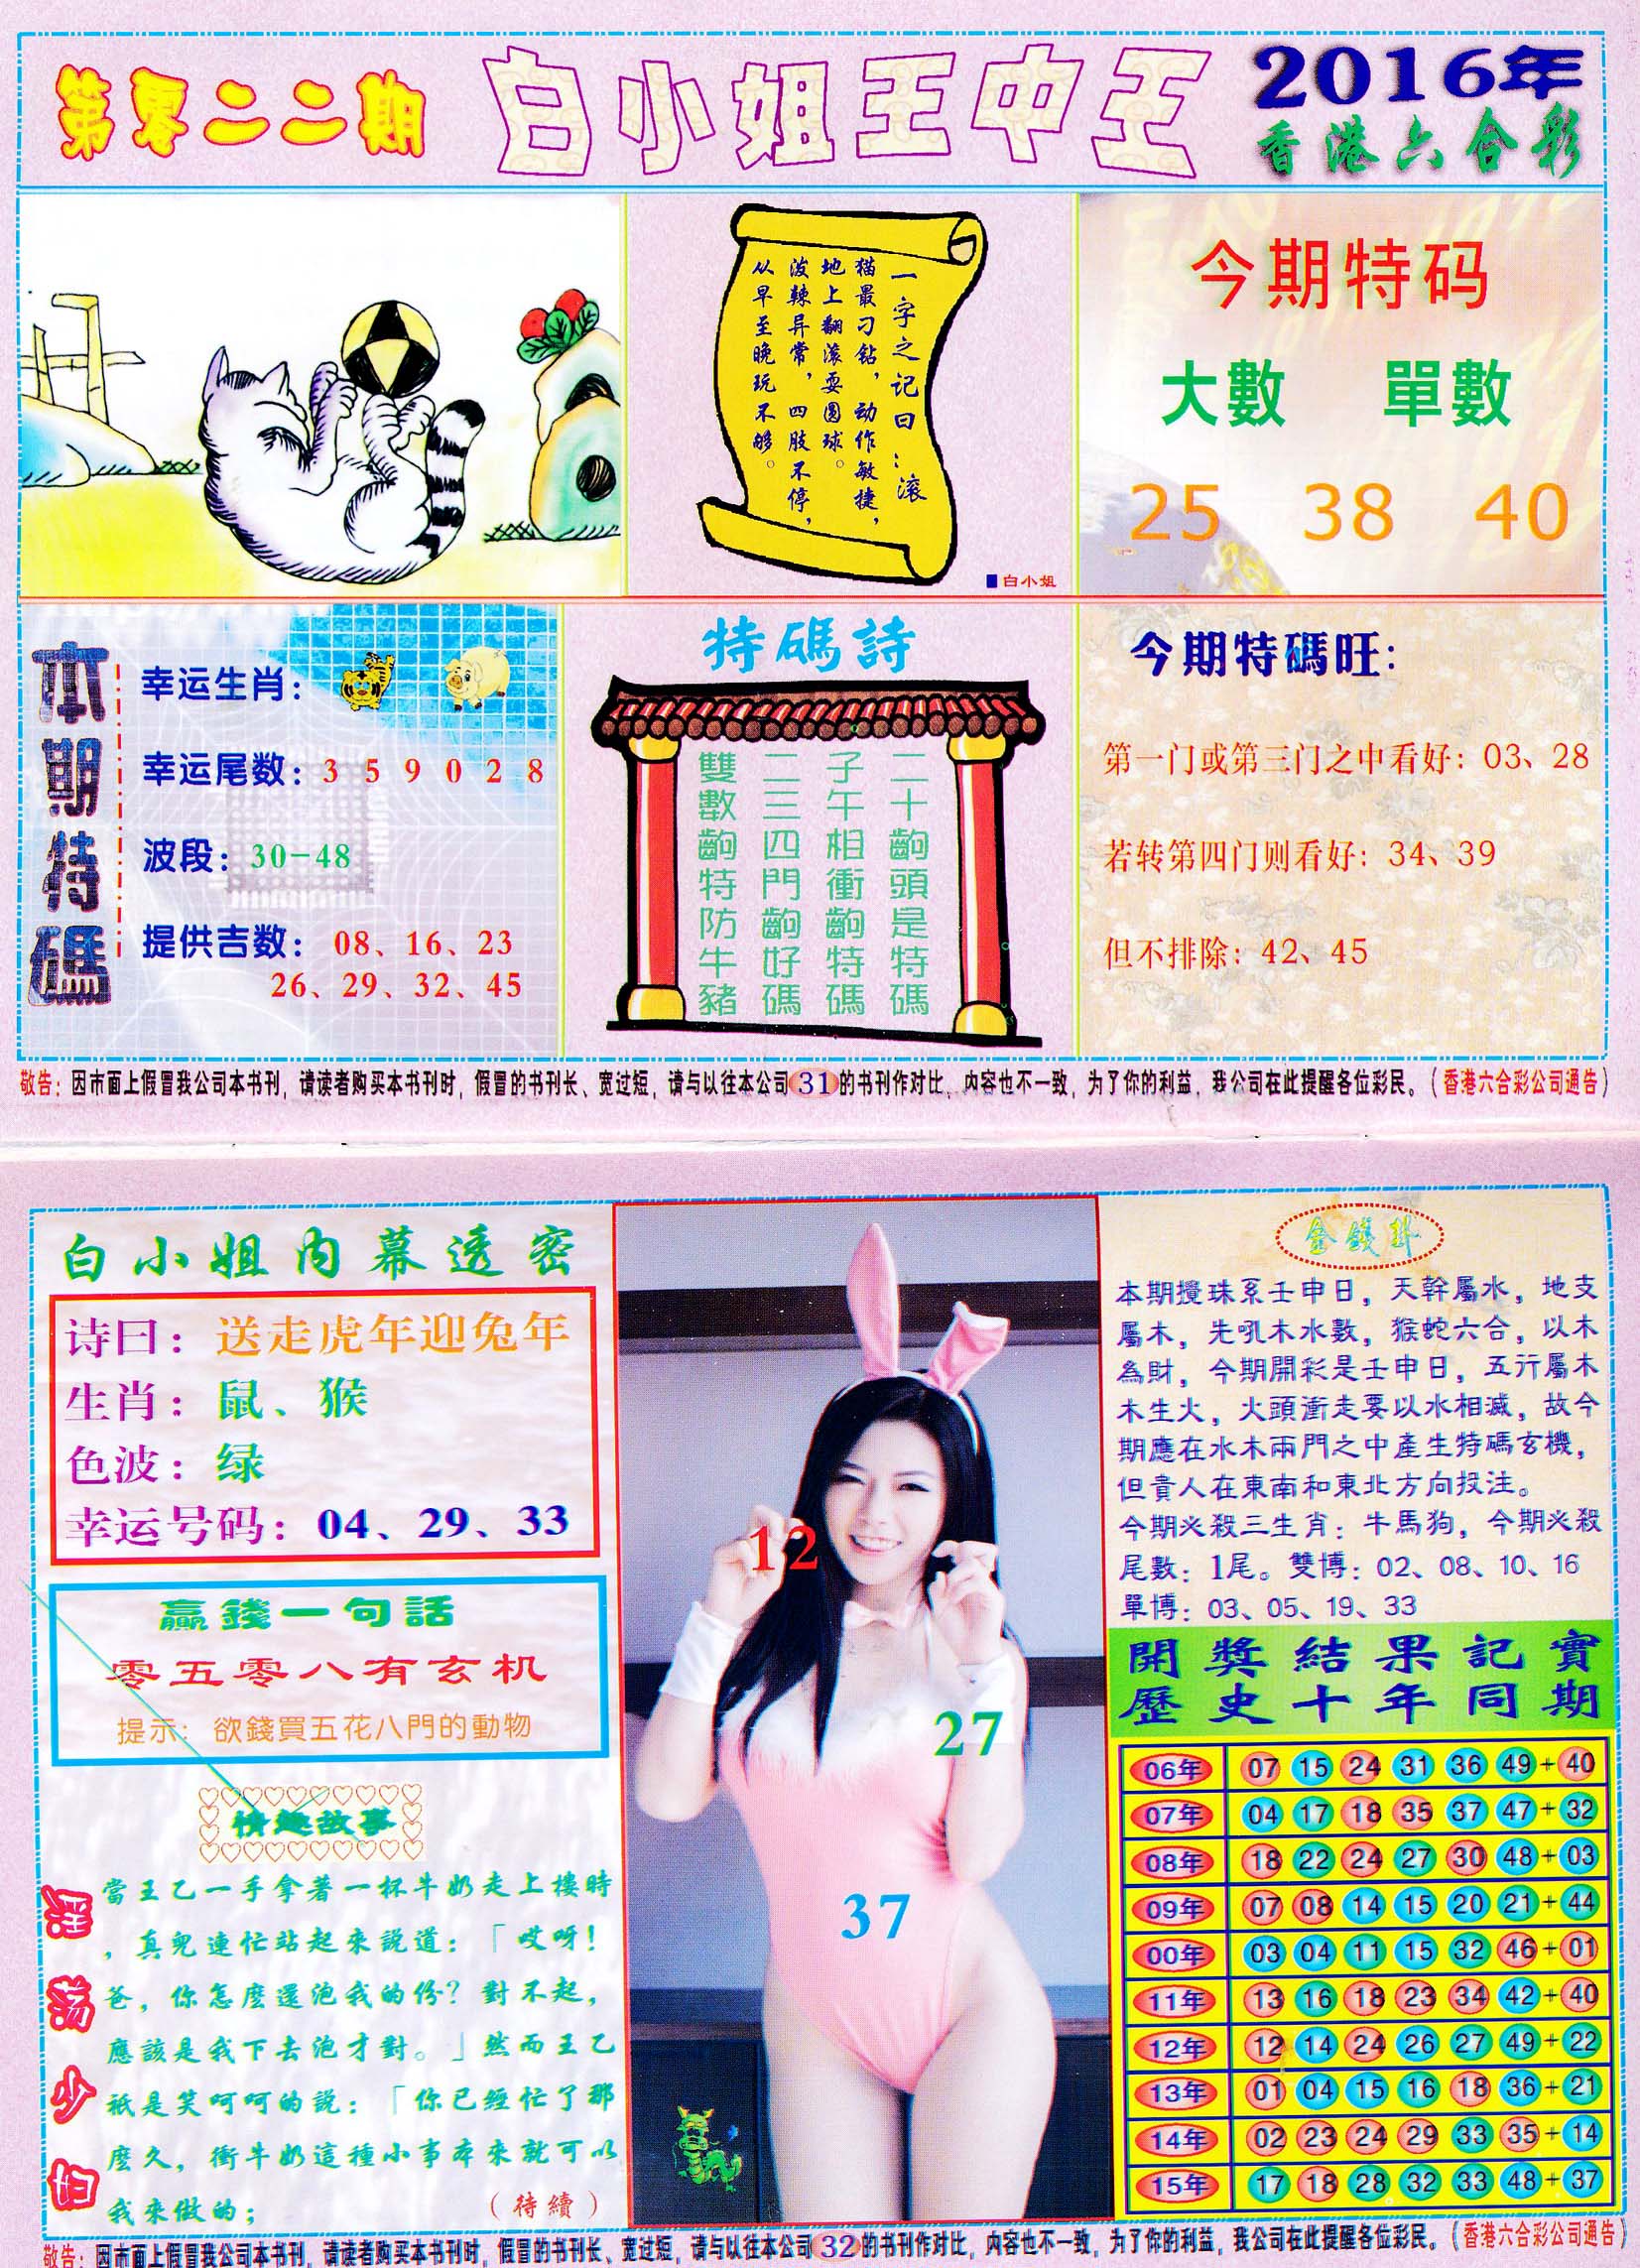 第零二二期
白小姐王中王
2016年
香港六合彩
一字之记曰：滚
猫最刁钻，动作敏捷，
地上翻滚耍圆球。
泼辣异常，四肢不停，
从早至晚玩不够。
■白小姐
今期特码
大數 單數
25 38 40
本期特碼
幸运生肖：
幸运尾数：3 5 9 0 2 8
波段：30-48
提供吉数：08、16、23
26、29、32、45
特碼詩
二十齣頭是特碼
子午相衝齣特碼
一二三四門齣好碼
雙數齣特防牛豬
今期特碼旺：
第一门或第三门之中看好：03、28
若转第四门则看好：34、39
但不排除：42、45
敬告：因市面上假冒我公司本书刊，请读者购买本书刊时，假冒的书刊长、宽过短，请与以往本公司31的书刊作对比，内容也不一致，为了你的利益，我公司在此提醒各位彩民。（香港六合彩公司通告）
白小姐内幕透密
诗曰：送走虎年迎兔年
生肖：鼠、猴
色波：绿
幸运号码：04、29、33
贏錢一句話
零五零八有玄机
提示：欲錢買五花八門的動物
情趣故事
淫荡少妇
當王乙一手拿著一杯牛奶走上樓時
，真兒連忙站起來說道：「哎呀！
爸，你怎麼還泡我的份？對不起，
應該是我下去泡才對。」然而王乙
祇是笑呵呵的說：「你已經忙了那
麼久，衝牛奶這種小事本來就可以
我來做的；
（待續）
12
27
37
金錢卦
本期攪珠系壬申日，天幹屬水，地支
屬木，先吼木水數，猴蛇六合，以木
為財，今期開彩是壬申日，五行屬木
木生火，火頭衝走要以水相滅，故今
期應在水木兩門之中產生特碼玄機，
但貴人在東南和東北方向投注。
今期必殺三生肖：牛馬狗，今期必殺
尾數：1尾。雙博：02、08、10、16
單博：03、05、19、33
開獎結果記實
歷史十年同期
06年 07 15 24 31 36 49+40
07年 04 17 18 35 37 47+32
08年 18 22 24 27 30 48+03
09年 07 08 14 15 20 21+44
00年 03 04 11 15 32 46+01
11年 13 16 18 23 34 42+40
12年 12 14 24 26 27 49+22
13年 01 04 15 16 18 36+21
14年 02 23 24 29 33 35+14
15年 17 18 28 32 33 48+37
敬告：因市面上假冒我公司本书刊，请读者购买本书刊时，假冒的书刊长、宽过短，请与以往本公司32的书刊作对比，内容也不一致，为了你的利益，我公司在此提醒各位彩民。（香港六合彩公司通告）